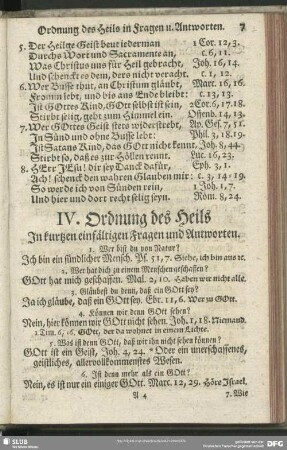 Ordnung des Heils in Fragen u. Antworten. 7
5. Der Heilge Geist beut iederman 1 Cor. 12, 3.
Durchs Wort und Sacramente an, c. 6, 11.
Was Christus uns für Heil gebracht, Joh. 16, 14.
Und schenckt es dem, ders nicht veracht. c. 1, 12.
6. Wer Busse thut, an Christum gläubt, Marc. 16, 16.
Fromm lebt, und bis ans Ende bleibt: c. 13, 13.
Ist GOttes Kind, GOtt selbst ist sein, 2 Cor. 6, 17. 18.
Stirbt selig, geht zum Himmel ein. Offenb. 14, 13.
7. Wer GOttes Geist stets widerstrebt, Ap. Ges. 7, 51.
In Sünd und ohne Busse lebt: Phil. 3, 18. 19.
Ist Satans Kind, das GOtt nicht kennt. Joh. 8, 44.
Stirbt so, daß es zur Höllen rennt. Luc. 16, 23.
8. HErr JEsu! dir sey Danck dafür, Eph. 3, 1.
Ach! schenck den wahren Glauben mir: c. 3, 14-19.
So werde ich von Sünden rein, 1 Joh. 1, 7.
Und hier und dort recht selig seyn. Röm. 8, 24.
IV. Ordnung des Heils
In kurzen einfältigen Fragen und Antworten.
1. Wer bist du von Natur?
Ich bin ein sündlicher Mensch. Ps. 51, 7. Siehe, ich bin aus ꝛc.
2. Wer hat dich zu einem Menschen geschaffen?
GOtt hat mich geschaffen. Mal. 2, 10. Haben wir nicht alle.
3. Gläubest du denn, daß ein GOtt sey?
Ja ich gläube, daß ein GOtt sey. Ebr. 11, 6. Wer zu GOtt.
4. Können wir denn GOtt sehen?
Nein, hier können wir GOtt nicht sehen. Joh. 1, 18. Niemand.
1 Tim. 6, 16. GOtt, der da wohnet in einem Lichte.
5. Was ist denn GOtt, daß wir ihn nicht sehen können?
GOtt ist ein Geist, Joh. 4, 24. * Oder ein unerschaffenes,
geistliches, allervollkommenstes Wesen.
6. Ist denn mehr als ein GOtt?
Nein, es ist nur ein einiger GOtt. Marc. 12, 29. Höre Israel,
A 4 7. Wie
SLUB